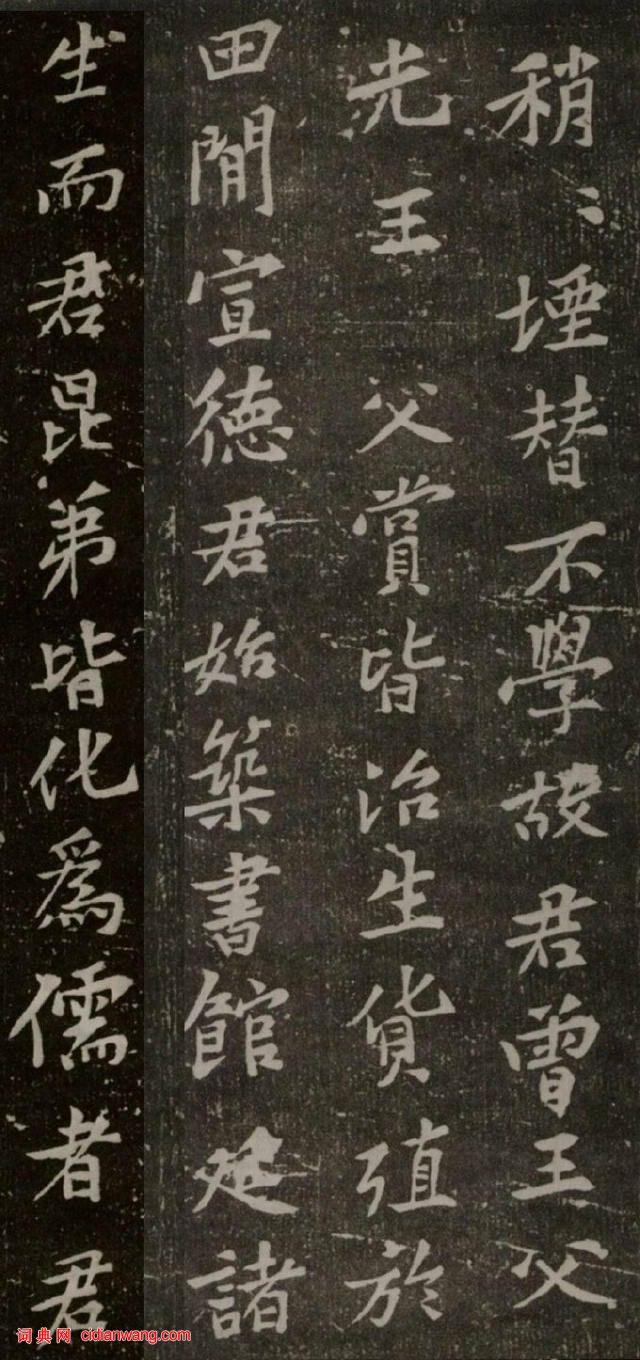 稍〻堙替不學故君曾王父
光王父賞皆治生貨殖於
田閒宣徳君始築書館延諸
生而君昆弟皆化爲儒者君
词典网 cidianwang.com